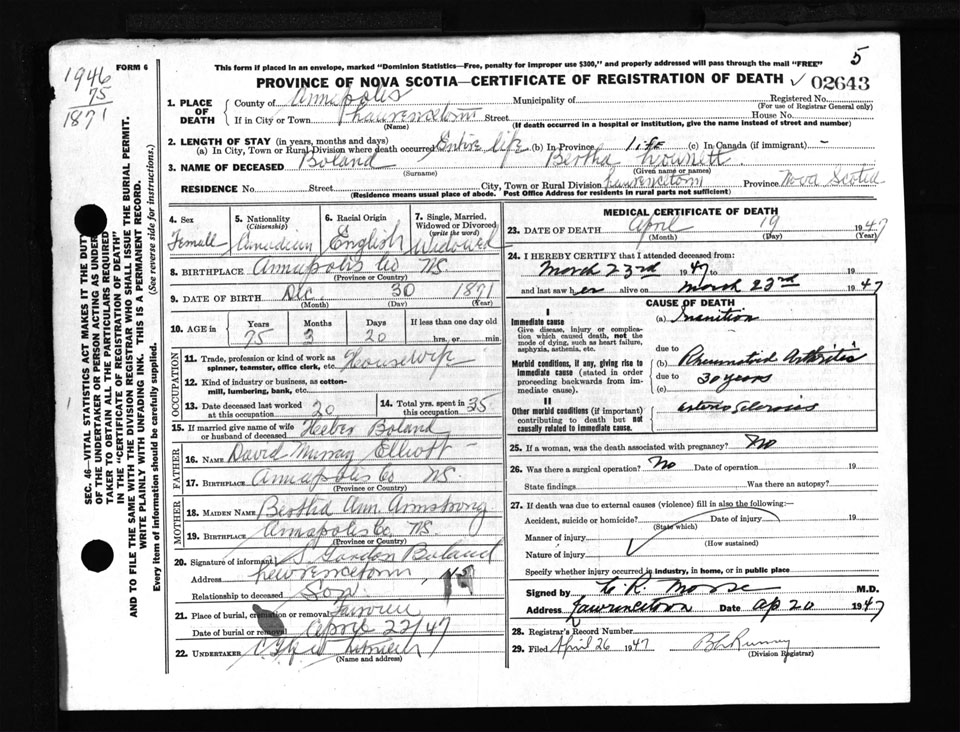 This form if placed in an envelope, marked "Dominion Statistics—Free, penalty for improper use $300," and properly addressed will pass through the mail "FREE"
FORM 6
5
1946
75
1871
PROVINCE OF NOVA SCOTIA—CERTIFICATE OF REGISTRATION OF DEATH
02643
SEC. 46—VITAL STATISTICS ACT MAKES IT THE DUTY
OF THE UNDERTAKER OR PERSON ACTING AS UNDER-
TAKER TO OBTAIN ALL THE PARTICULARS REQUIRED
IN THE "CERTIFICATE OF REGISTRATION OF DEATH"
AND TO FILE THE SAME WITH THE DIVISION REGISTRAR WHO SHALL ISSUE THE BURIAL PERMIT.
WRITE PLAINLY WITH UNFADING INK. THIS IS A PERMANENT RECORD.
Every item of information should be carefully supplied. (See reverse side for instructions.)
1. PLACE OF DEATH County of Annapolis Municipality of Registered No.
(For use of Registrar General only)
If in City or Town Street House No.
(Name) (If death occurred in a hospital or institution, give the name instead of street and number)
2. LENGTH OF STAY (in years, months and days)
(a) In City, Town or Rural Division where death occurred Entire life (b) In Province life (c) In Canada (if immigrant) -
3. NAME OF DECEASED Boland Bertha
(Surname) (Given name or names)
RESIDENCE No. Street City, Town or Rural Division Province Nova Scotia
(Residence means usual place of abode. Post Office Address for residents in rural parts not sufficient)
4. Sex Female
5. Nationality (Citizenship) Canadian
6. Racial Origin English
7. Single, Married, Widowed or Divorced (write the word) Widowed
8. BIRTHPLACE Annapolis Co NS.
(Province or Country)
9. DATE OF BIRTH Dec. 30 1871
(Month) (Day) (Year)
10. AGE in Years Months Days If less than one day old
75 3 20 hrs. or min.
OCCUPATION
11. Trade, profession or kind of work as spinner, teamster, office clerk, etc. Housewife
12. Kind of industry or business, as cotton-mill, lumbering, bank, etc.
13. Date deceased last worked at this occupation 20
14. Total yrs. spent in this occupation 35
15. If married give name of wife or husband of deceased Heber Boland
FATHER
16. NAME David Murray Elliott
17. BIRTHPLACE Annapolis Co NS.
(Province or Country)
MOTHER
18. MAIDEN NAME Bertha Ann Armstrong
19. BIRTHPLACE Annapolis Co. NS.
(Province or Country)
20. Signature of informant S. Gordon Boland
Address
Relationship to deceased Son
21. Place of burial, cremation or removal
Date of burial or removal April 22/47
22. UNDERTAKER
(Name and address)
MEDICAL CERTIFICATE OF DEATH
23. DATE OF DEATH April 19 1947
(Month) (Day)
24. I HEREBY CERTIFY that I attended deceased from:
March 23rd 1947 to 19
and last saw her alive on March 23rd 1947
CAUSE OF DEATH
I
Immediate cause
Give disease, injury or complication which caused death, not the mode of dying, such as heart failure, asphyxia, asthenia, etc.
(a) Inanition
due to
Morbid conditions, if any, giving rise to immediate cause (stated in order proceeding backwards from immediate cause).
(b) Rheumatoid Arthritis
due to 30 years
(c)
II
Other morbid conditions (if important) contributing to death but not causally related to immediate cause.
arterio sclerosis
25. If a woman, was the death associated with pregnancy? No
26. Was there a surgical operation? No Date of operation
State findings Was there an autopsy?
27. If death was due to external causes (violence) fill in also the following:—
Accident, suicide or homicide? Date of injury 19
(State which)
Manner of injury
(How sustained)
Nature of injury
Specify whether injury occurred in industry, in home, or in public place
Signed by C R Morse M.D.
Address Lawrencetown Date Ap 20 1947
28. Registrar's Record Number
29. Filed April 26 1947
(Division Registrar)